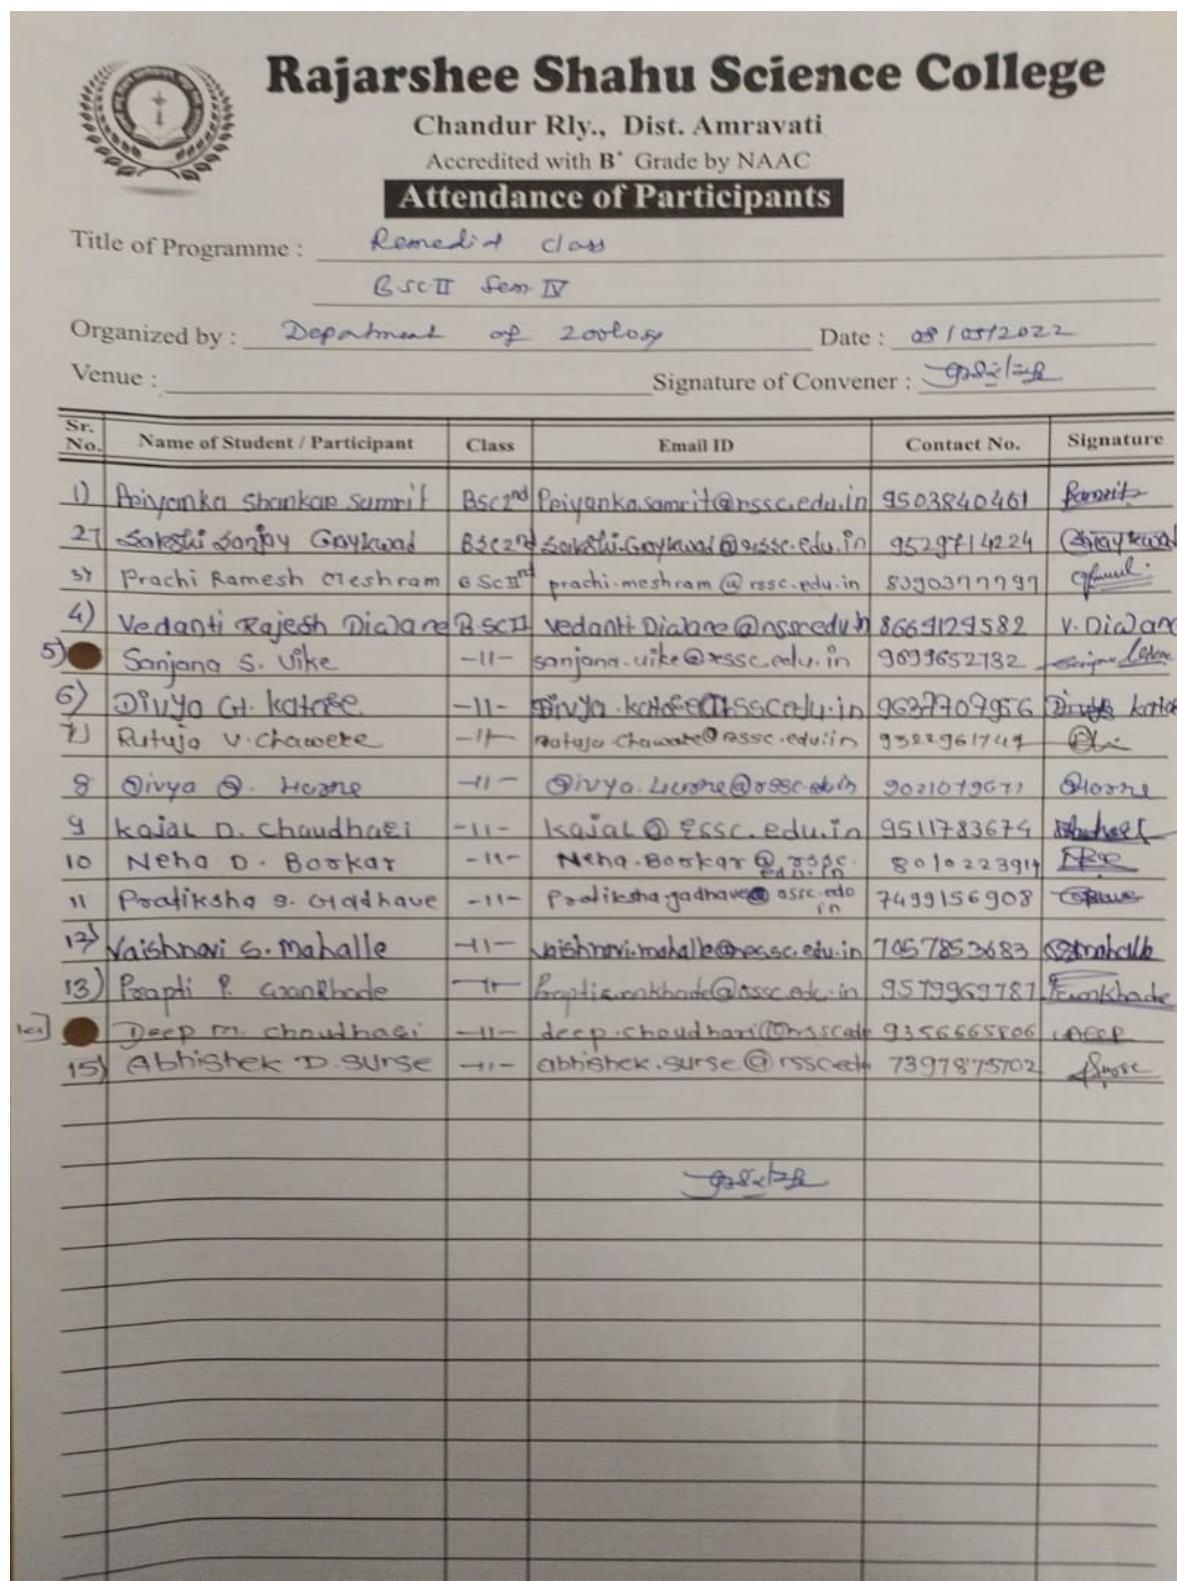 Rajarshee Shahu Science College
Chandur Rly., Dist. Amravati
Accredited with B+ Grade by NAAC
Attendance of Participants
Title of Programme : Remedial class
BSc II Sem IV
Organized by : Department of Zoology Date : 08/05/2022
Venue : Signature of Convener :
Sr. No. Name of Student / Participant Class Email ID Contact No. Signature
1) Priyanka Shankar Samrit BSc 2nd Priyanka.samrit@rssc.edu.in 9503840461 Samrit
2) Sakshi Sanjay Gaykwad BSc 2nd Sakshi.Gaykwad@rssc.edu.in 9529714224
3) Prachi Ramesh Meshram BSc IInd prachi.meshram@rssc.edu.in 8390377797
4) Vedanti Rajesh Diwane B.SC II vedanti.Diwane@rssc.edu.in 8669129582 V. Diwan
5) Sanjana S. Uike -11- sanjana.uike@rssc.edu.in 9699652732
6) Divya G. Katore -11- Divya.katore@rssc.edu.in 9637707956 Divya kato
7) Rutuja V. Chaware -11- Rutuja Chaware@rssc.edu.in
8 Divya -11- 9021079671
9 Kajal D. Chaudhari -11- kajal@rssc.edu.in 9511783674
10 Neha D. Borkar -11- Neha.Borkar@rssc.edu.in 8010223914
11 Pratiksha S. Gadhave -11- Pratiksha.gadhave@rssc.edu in 7499156908
12) Vaishnavi S. Mahalle -11- vaishnavi.mahalle@rssc.edu.in 7057853683 Smahalle
13) Prapti P. Wankhade -11- Praptiwankhade@rssc.edu.in 9579969787 Wankhade
14) Deep M. Choudhari -11- deep.choudhari@rssc.edu 9356665806 DEEP
15) Abhishek D. Surse -11- abhishek.surse@rssc.edu 7397875702 Surse